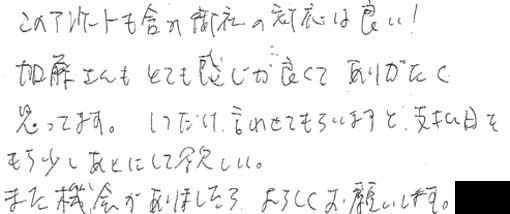 このアンケートも含め御社の対応は良い!
加藤さんもとても感じが良くてありがたく
思ってます。1つだけ言わせてもらいますと、支払日を
もう少しあとにして欲しい。
また機会がありましたら、よろしくお願いします。